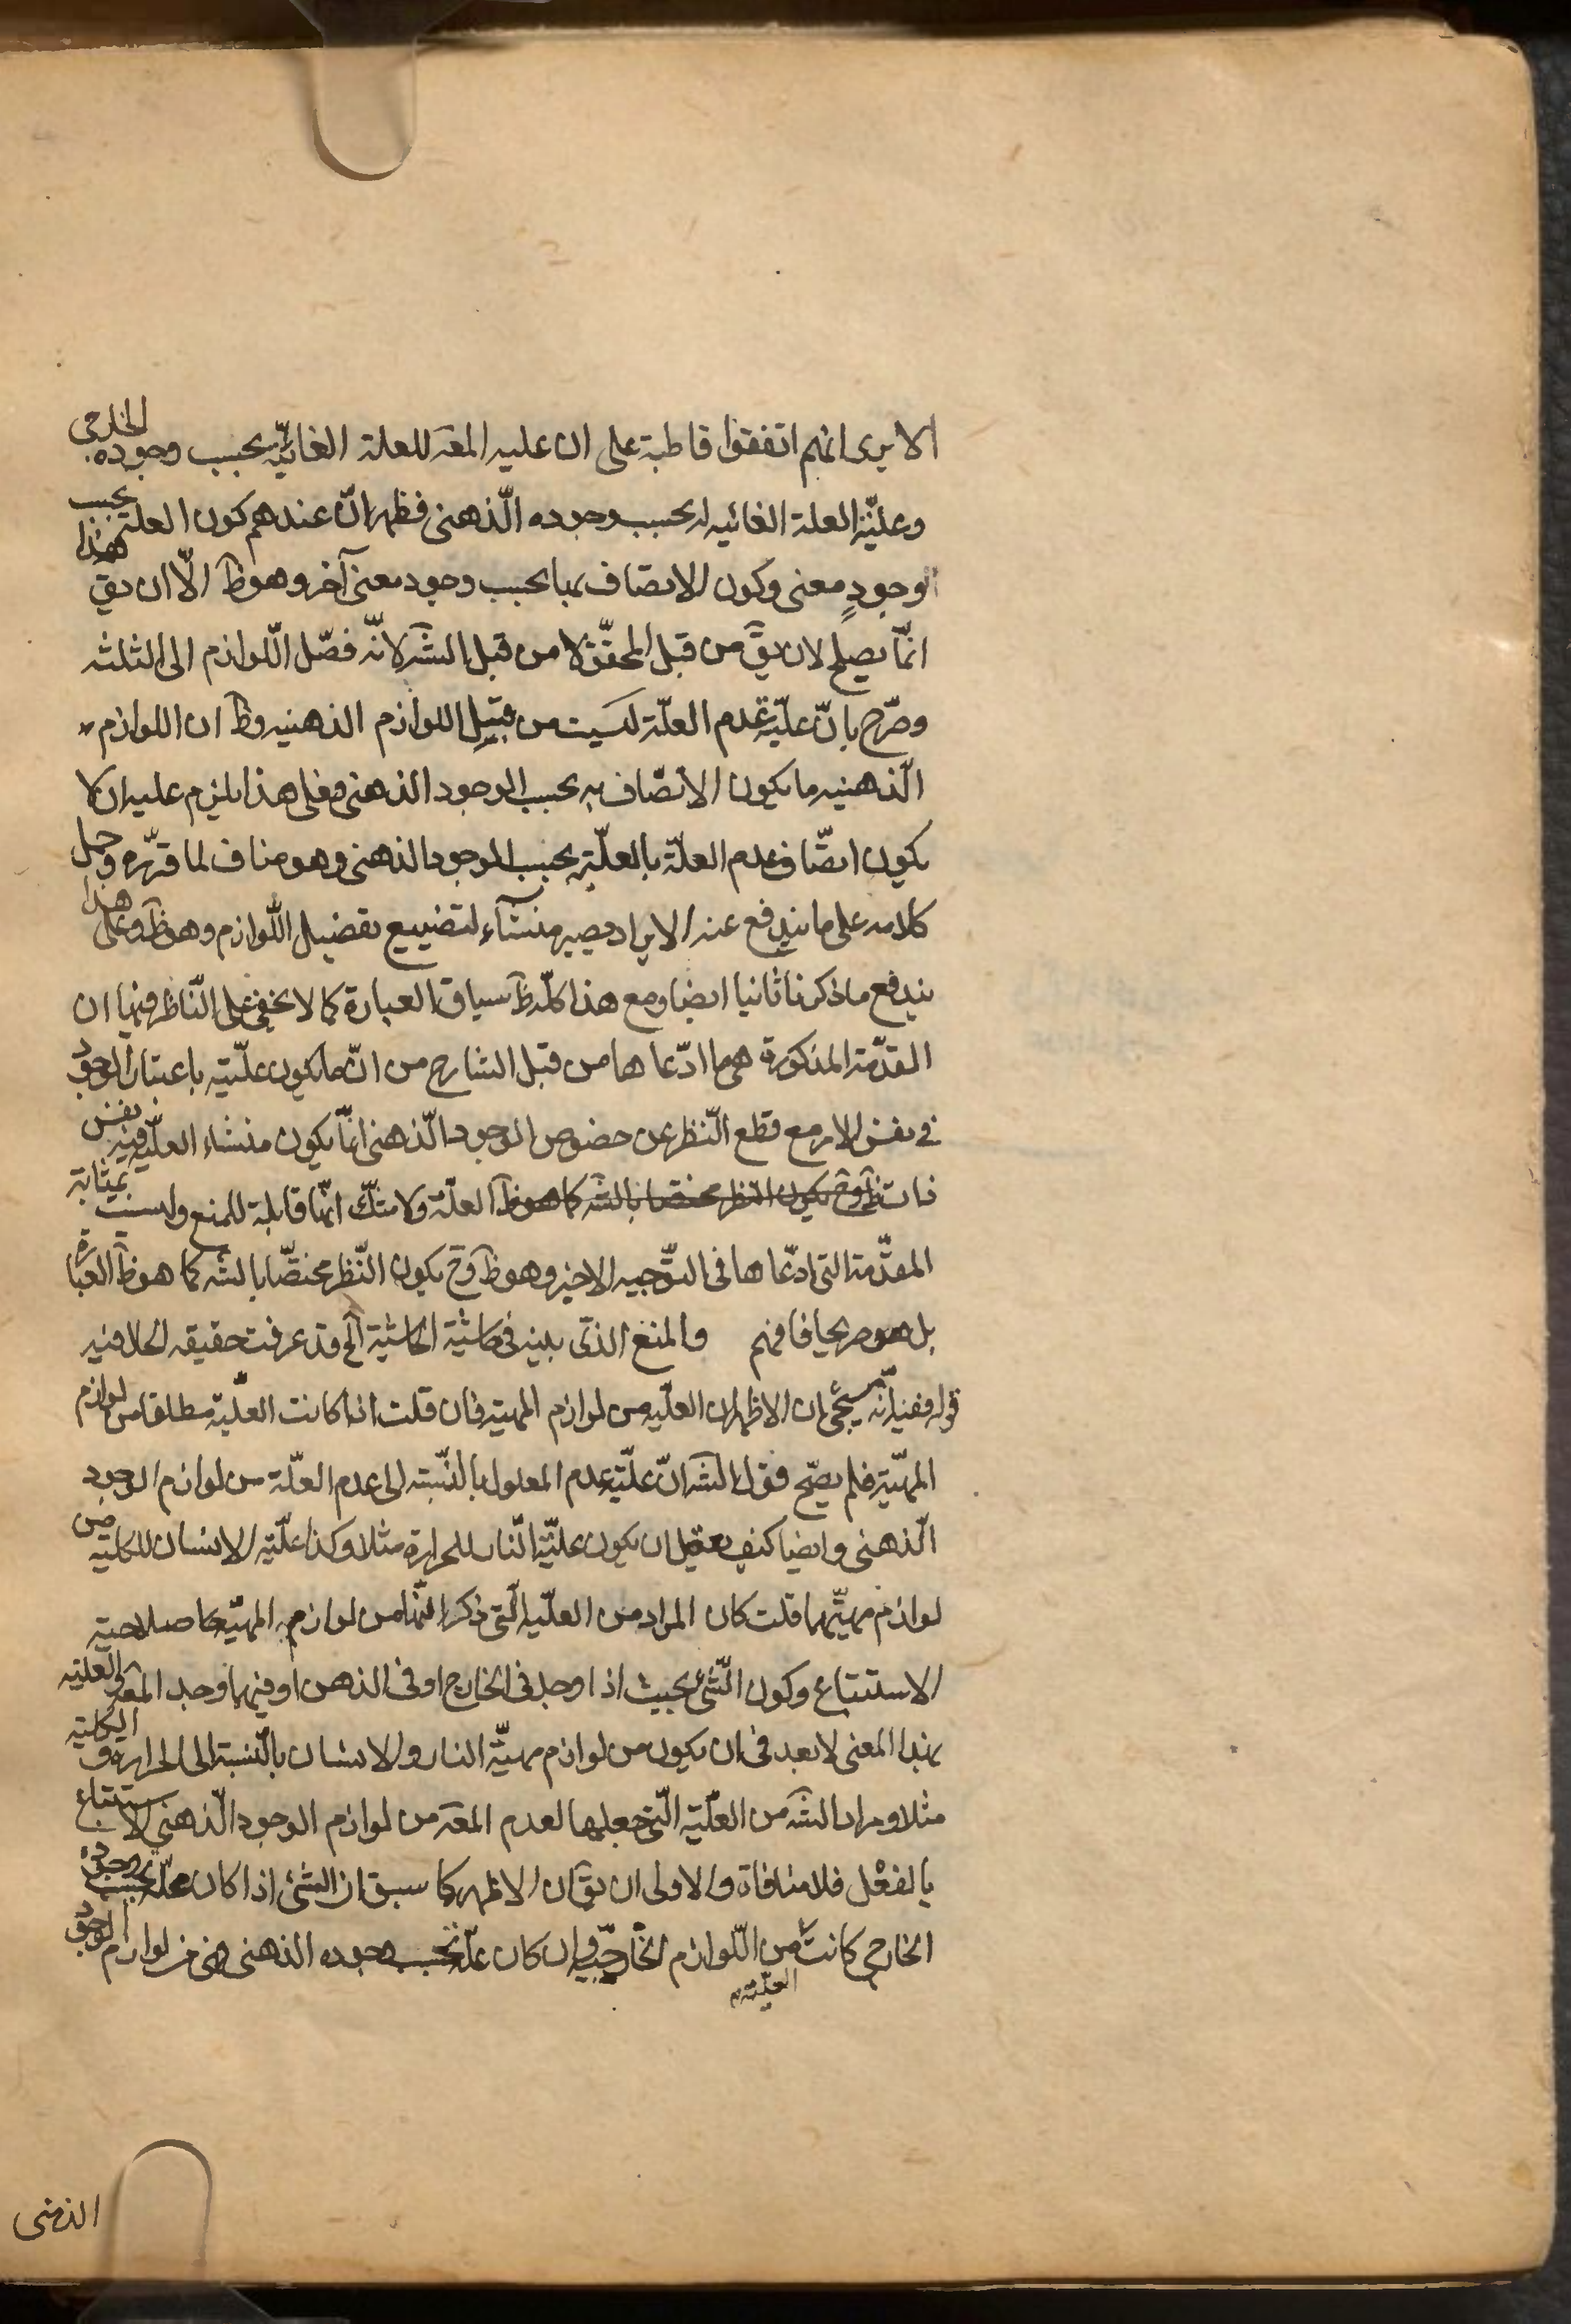 الا يرى انهم اتفقوا قاطبة على ان علية المعه للعلة الغائيّة بحسب وجوده الخارجى
وعليّة العلة الغائيه له بحسب وجوده الذّهنى فظهر انّ عندهم كون العلة بحسب
وجودٍ معنى وكون الاتصاف بها بحسب وجود معنى آخر وهو ظ الّا ان يق هذا
انمّا يصلح لان يقَ من قبل المحقّق لا من قبل الشَه لانّه فصّل اللّوازم الى الثلثه
وصّرح بانّ عليّة عدم العلّة ليست من قبيل اللوازم الذهنيه وظ ان اللوازم
الّذهنيه ما يكون الاتصّاف به بحسب الوجود الذهنى فعلى هذا يلزم عليه ان لا
يكون اتصّاف عدم العلّة بالعلّية بحسب الوجود الذهنى وهو مناف لما قرّره وحمل
كلامه على ما يندفع عنه الايراد يصير منشآء لتضييع تفصيل اللّوازم وهو ظ وعلى هذا
يندفع ما ذكرنا ثانيا ايضا ومع هذا كلّه ظ سياق العبارة كما لا يخفى على النّاظر فيها ان
المقدّمة المذكورة هى ما ادّعاها من قبل الشارح من انّ ما يكون علّيته باعتبار الوجود
فى نفس الامر مع قطع النّظر عن خصوص الوجود الّذهنى انمّا يكون منشاء العلّية فيه نفس
العلّة ولا شكّ انّها قابلة للمنع وليست بمثابة
المقدّمة التى ادّعاها فى التوّجيه الاخير وهو ظ وح يكون النّظر مختصّا بالشه كما هو ظ العبارة
بل هو صريحها فافهم والمنع الذى بينه فى حاشية الحاشية الخ قد عرفت حقيقة الحال فيه
قوله ففيه انّه سيجئ ان الاظهر ان العلّيه من لوازم المهيّة فان قلت اذا كانت العلّية مطلقا من لوازم
المهيّة فلم يصّح قول الشه انّ علّية عدم المعلول بالنّسبة الى عدم العلّة من لوازم الوجود
الّذهنى وايضا كيف يعقل ان يكون علّية النّار للحرارة مثلا وكذا علّية الانسان للكليّه من
لوازم مهيّتهما قلت كان المراد من العلّية الّتى ذكر انّها من لوازم المهيّة صلاحية
الاستتباع وكون الشّئ بحيث اذا وجد فى الخارج او فى الذهن او فيهما وجد المعه والعلّية
بهذا المعنى لا بعد فى ان يكون من لوازم مهيّة النار والانسان بالنّسبة الى الحرارة والكليّه
مثلا ومراد الشَه من العلّية الّتى جعلها لعدم المعَه من لوازم الوجود الّذهنى الاستتباع
بالفعْل فلا منافاة والاولى ان يقَ ان الاظهر كما سبق ان الشئ اذا كان علّة بحسب وجوده
الخارجى كانت العلّيّة من اللّوازم الخارجيّة وان كان علّة بحسب وجوده الذهنى فهى من لوازم الوجود
الذهنى